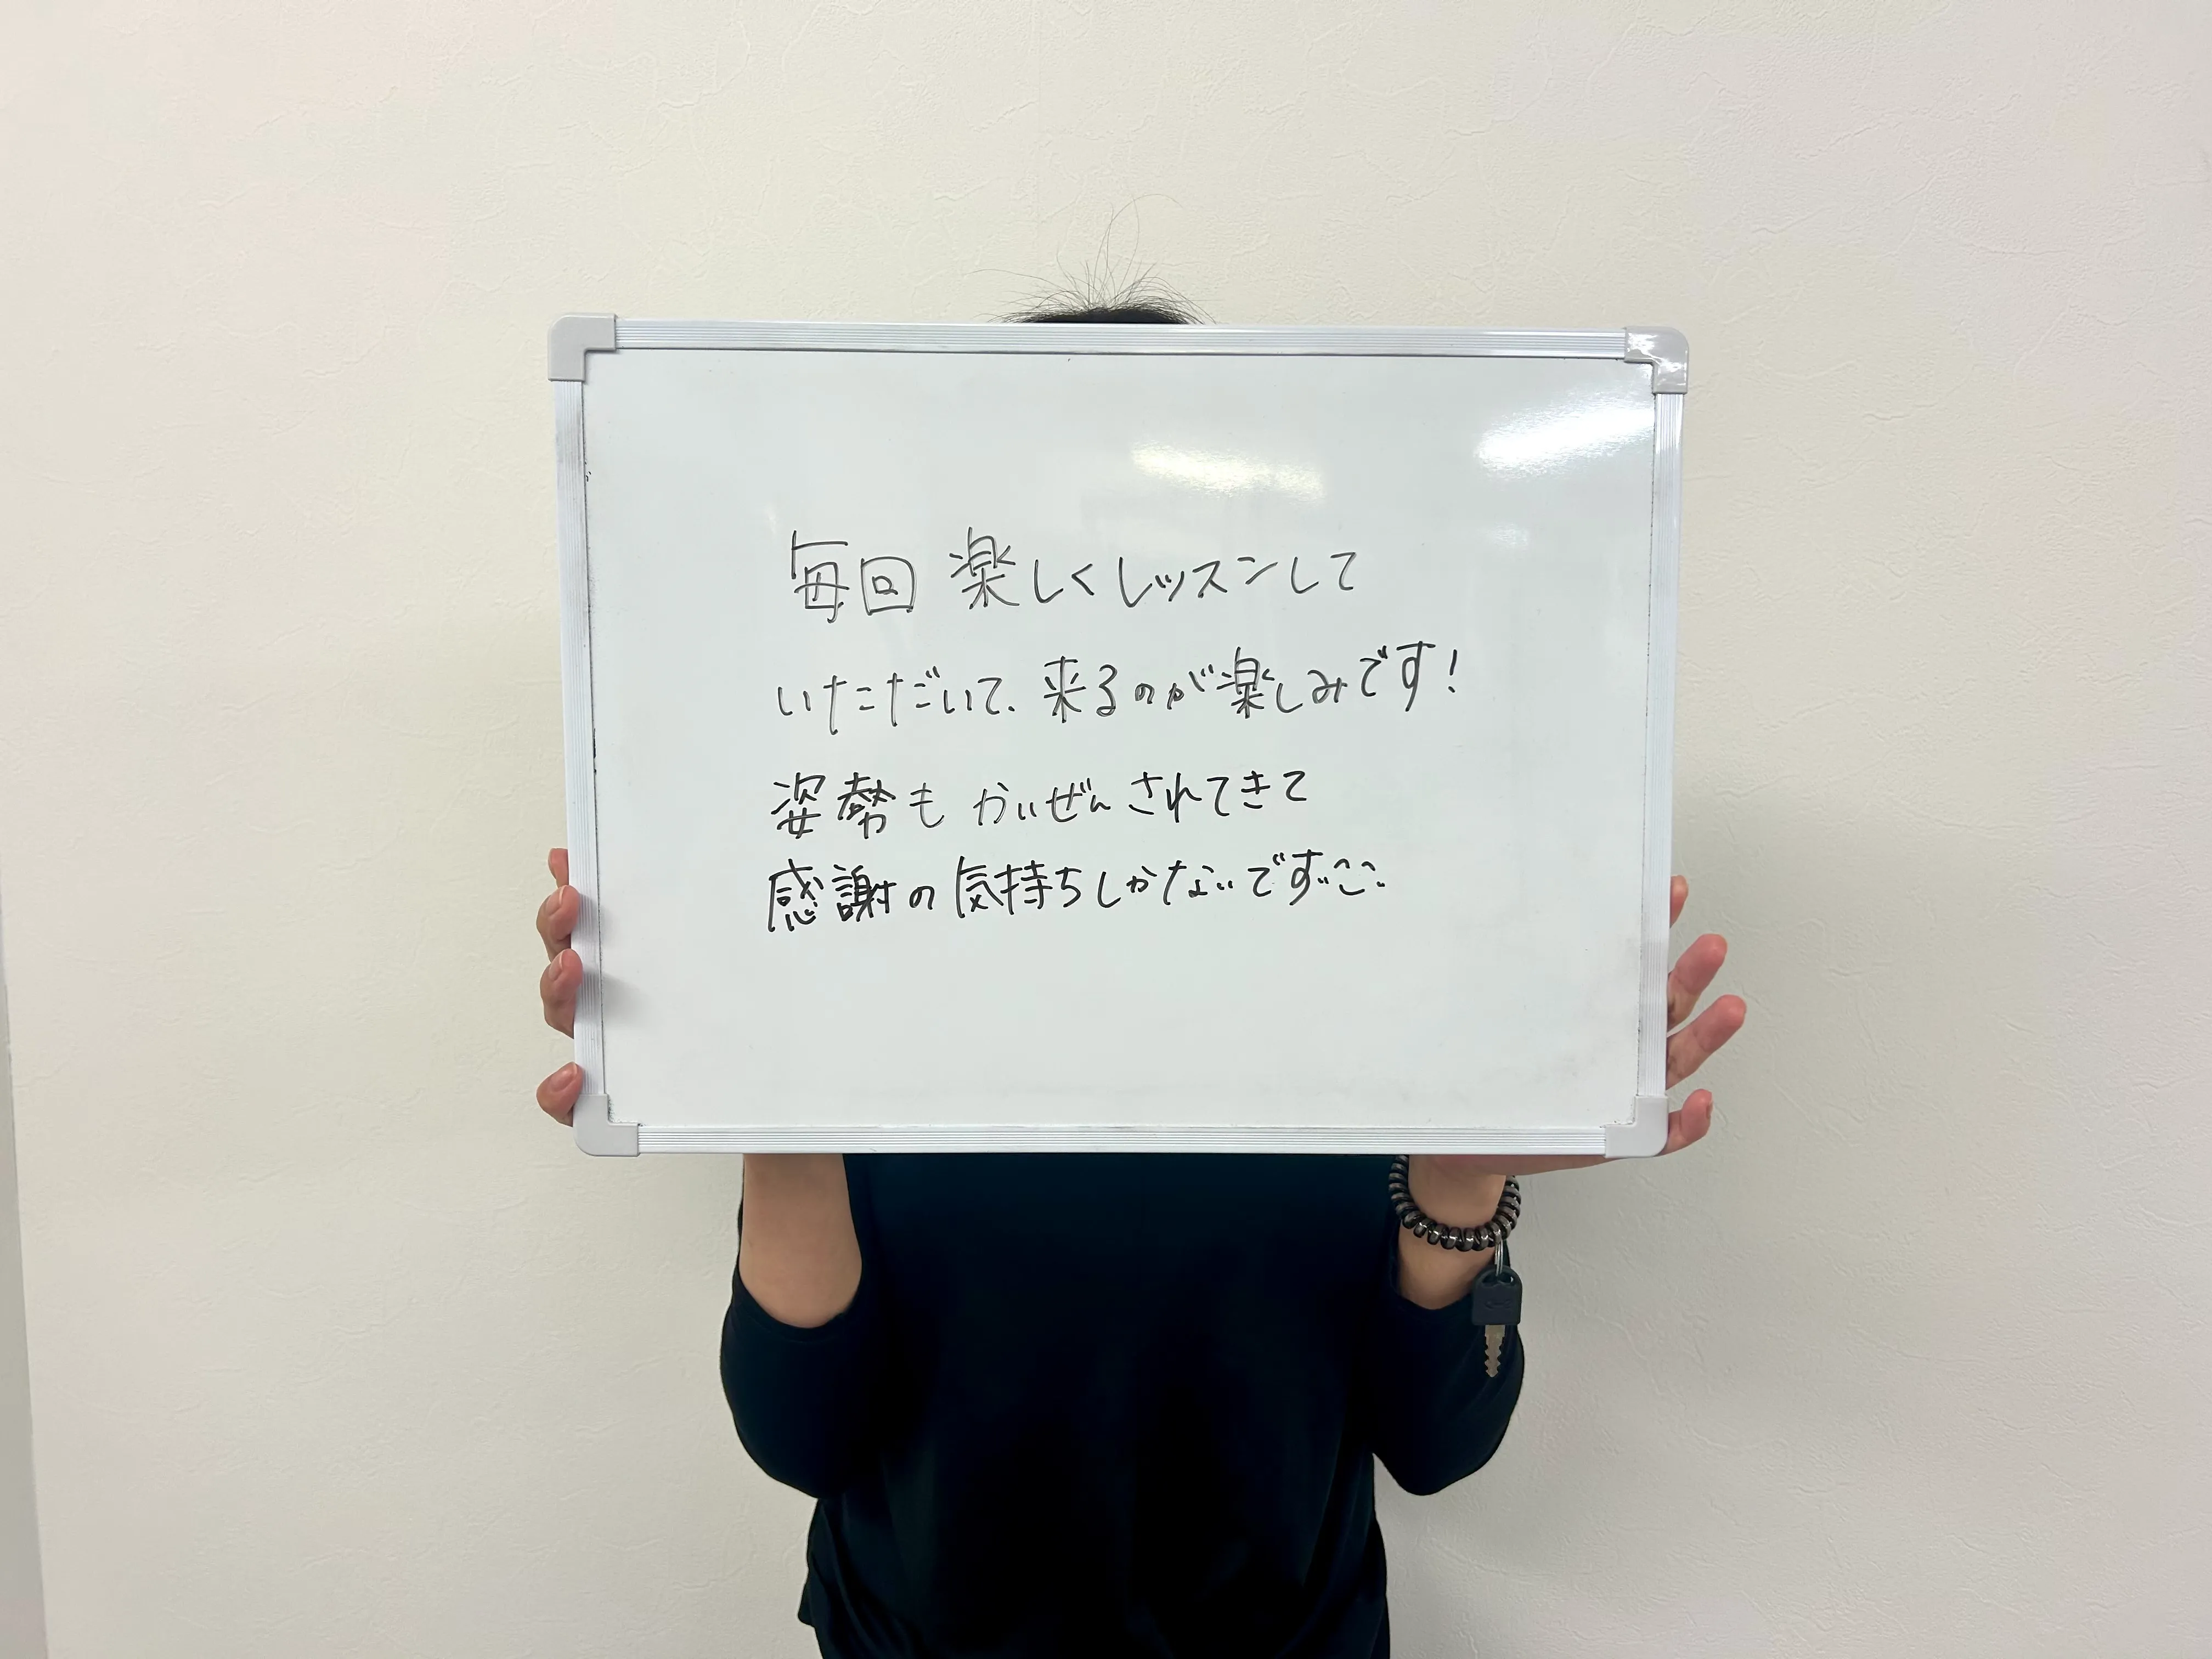 毎回 楽しくレッスンして
いただいて、来るのが楽しみです!
姿勢も かいぜんされてきて
感謝の気持ちしかないです